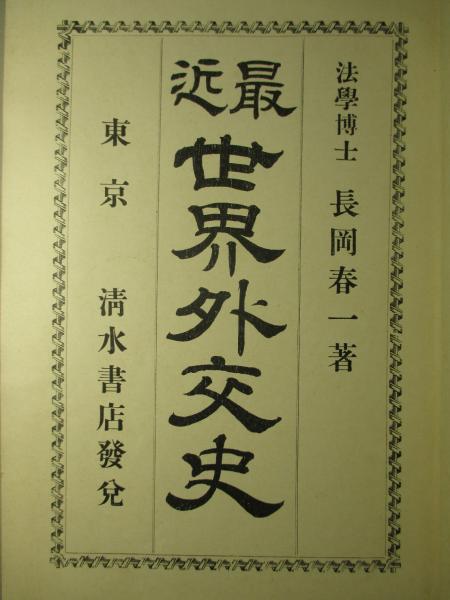 法學博士 長岡春一著
最近
世界外交史
東京 淸水書店發兌